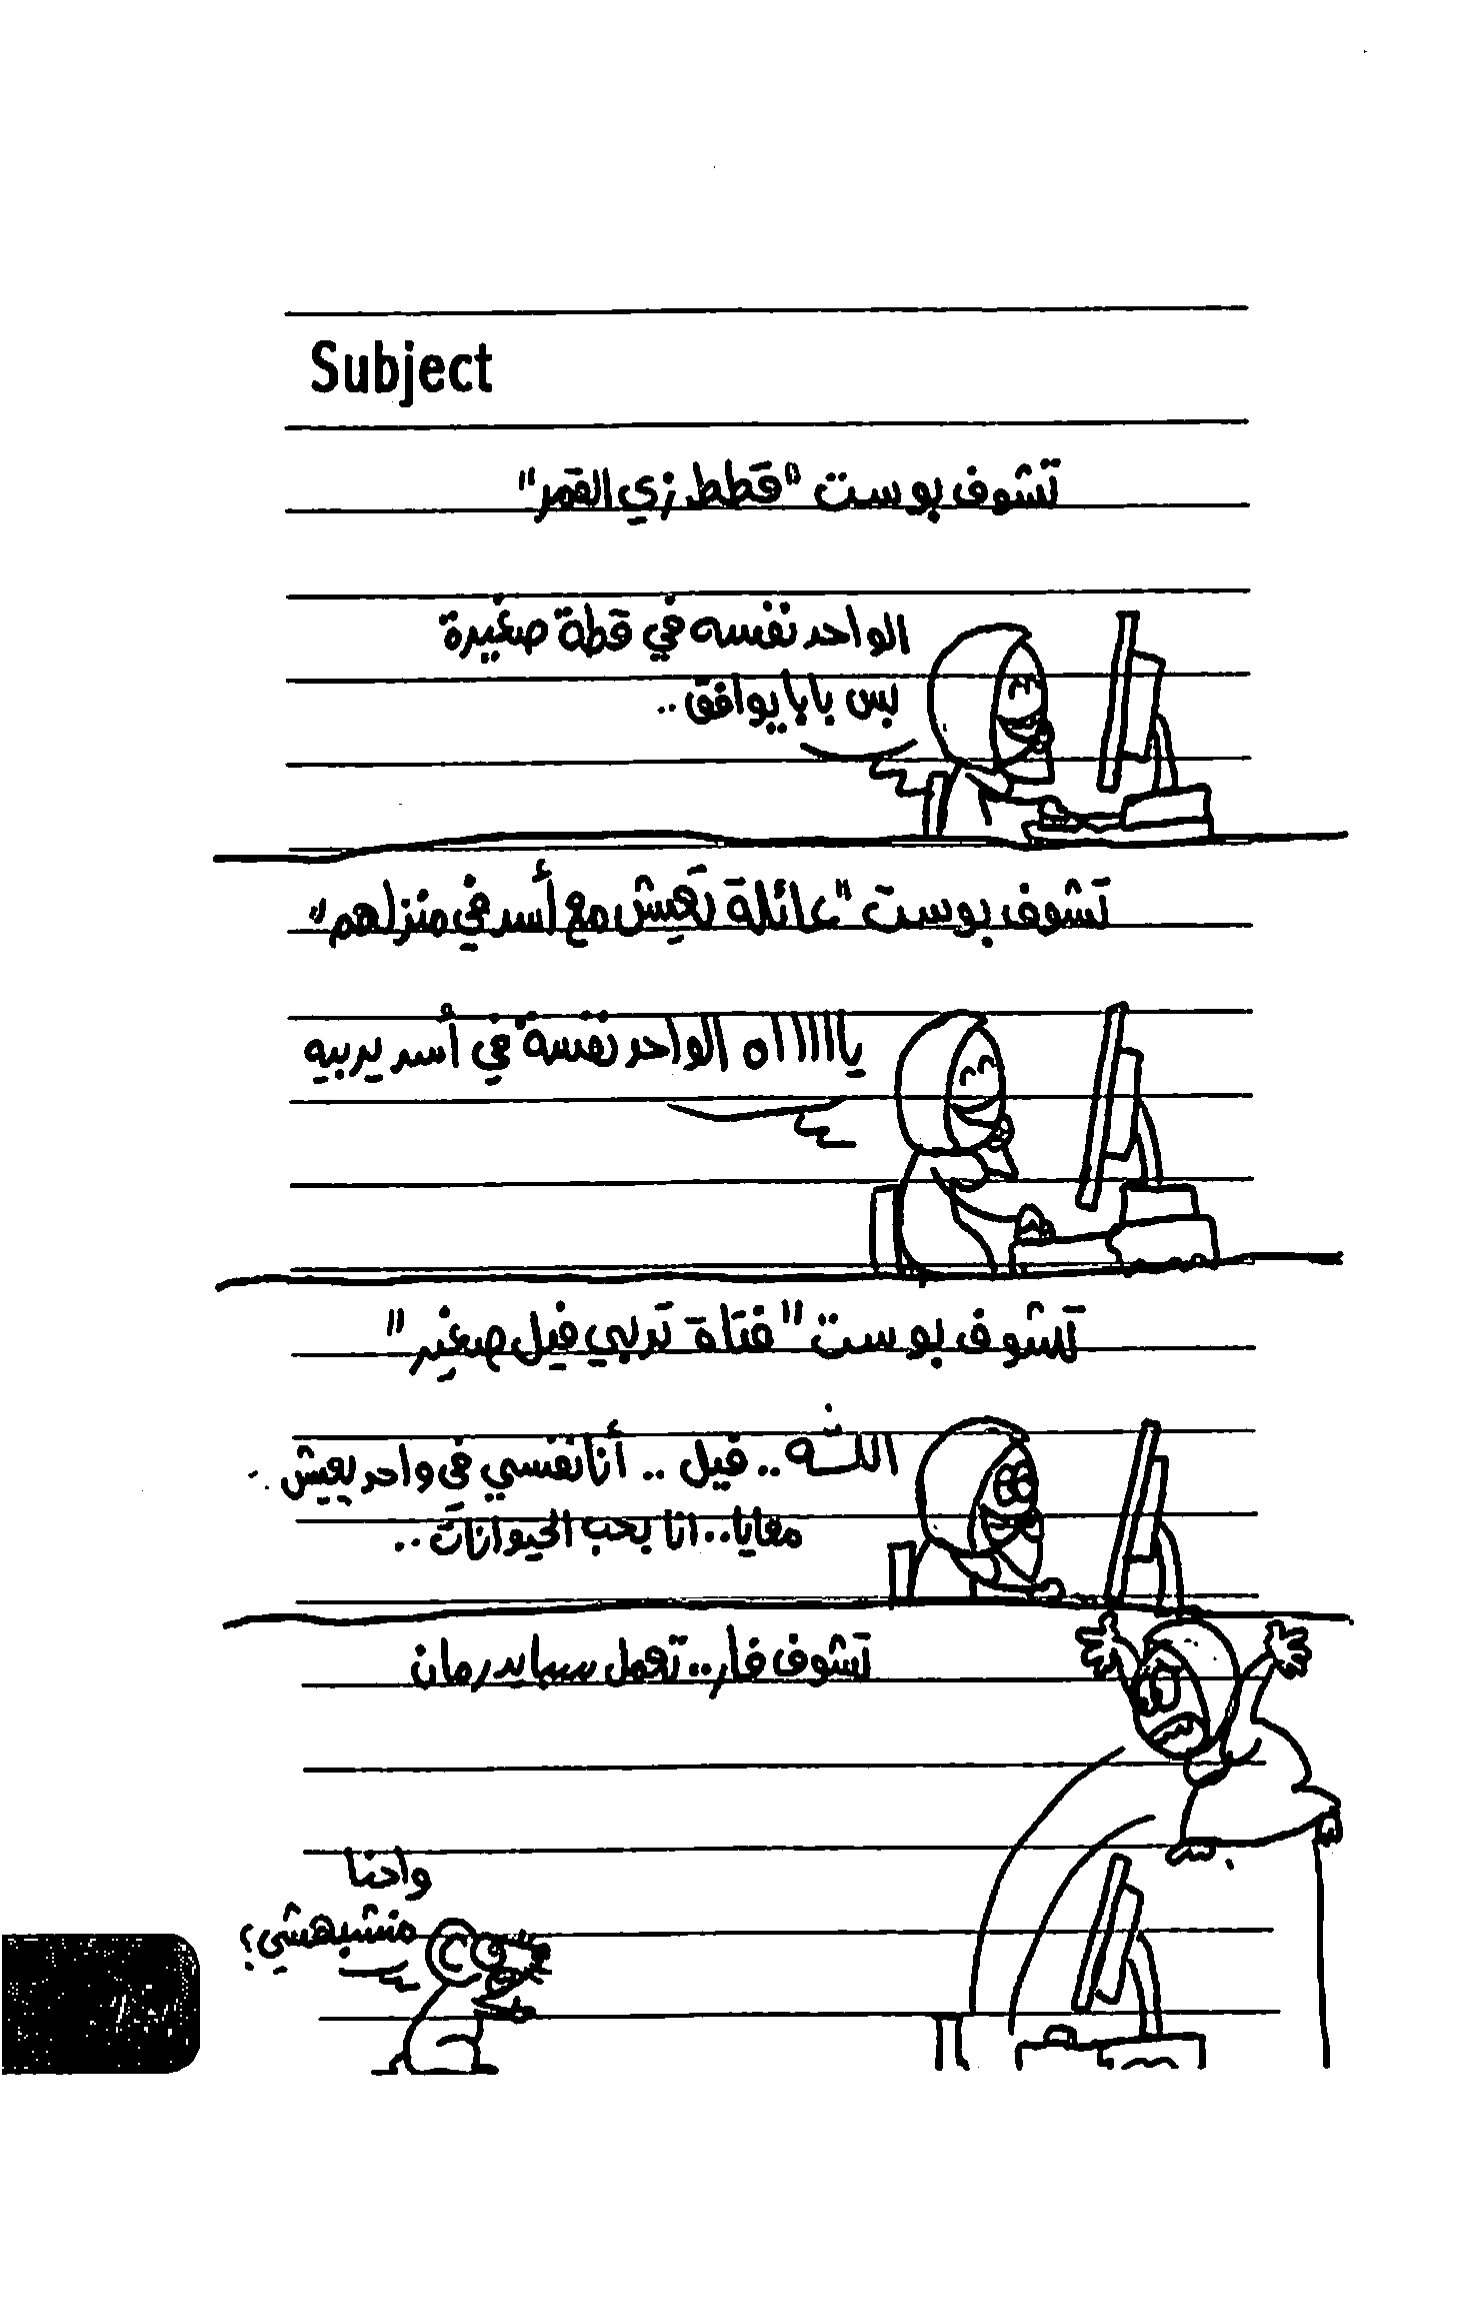 Subject
تشوف بوست "قطط زي القمر"
الواحد نفسه في قطة صغيرة
بس بابا يوافق..
تشوف بوست "عائلة تعيش مع أسد في منزلهم"
يااااااه الواحد نفسة في أسد يربيه
تشوف بوست "فتاة تربي فيل صغير"
الله.. فيل .. أنا نفسي في واحد يعيش..
معايا.. انا بحب الحيوانات..
تشوف فار.. تعمل سبايدرمان
واحنا
منشبهشي؟